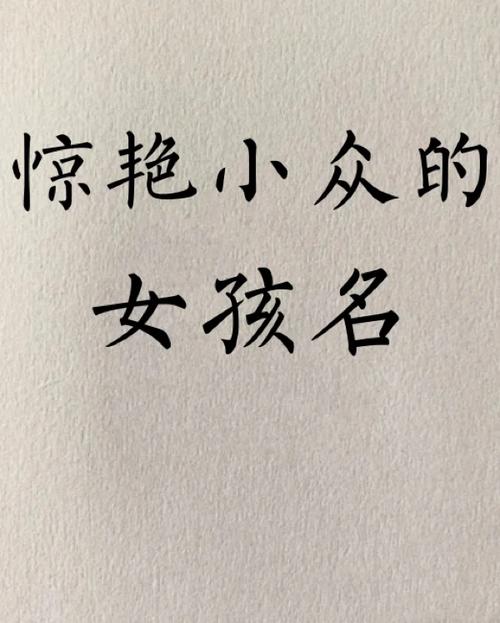 惊艳小众的
女孩名